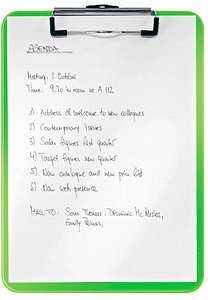 AGENDA
Meeting, 11. October
Time: 9.30 in room no. A 112
1) Address of welcome to new collegues
2) Contemporary Issues
3) Sales figures last quarter
4) Target figures new quarter
5) New catalogue and new price list
6) New web presence
MAIL TO: Dominic Mc
Emily